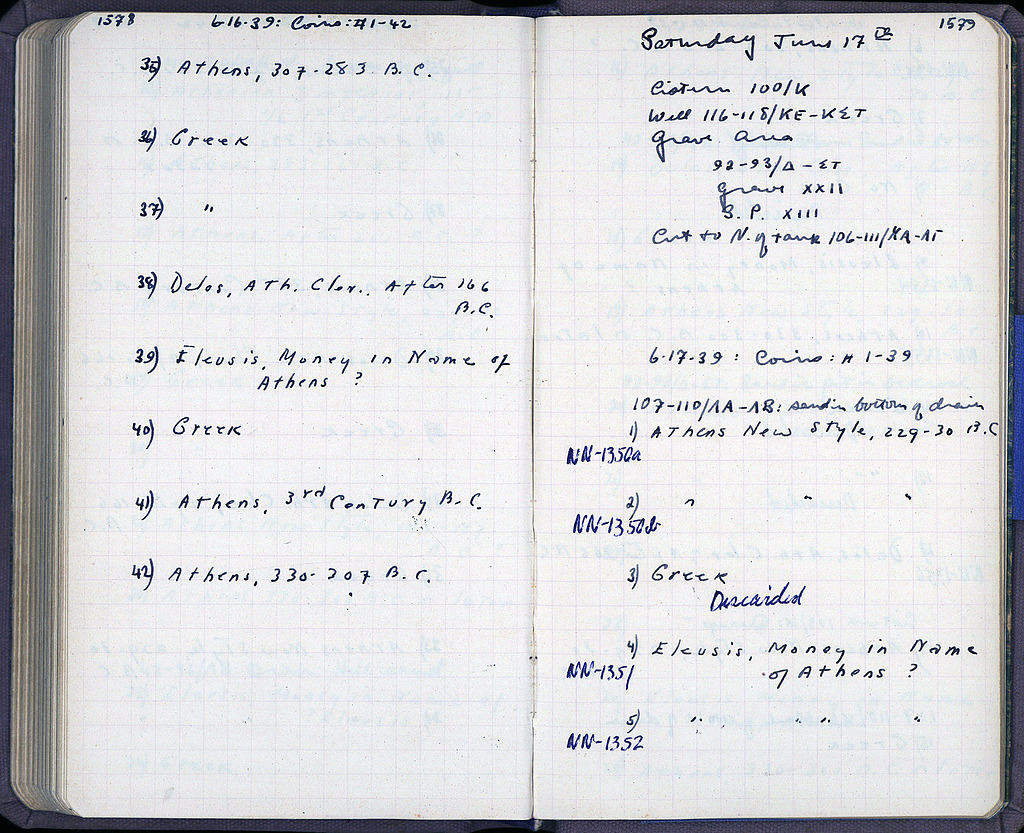 1578
6-16-39: Coins: #1-42
35) Athens, 307-283 B.C.
36) Greek
37) "
38) Delos, Ath. Cler., After 166
B.C.
39) Eleusis, Money in Name of
Athens ?
40) Greek
41) Athens, 3rd Century B.C.
42) Athens, 330-307 B.C.
1579
Saturday June 17th
Cistern 100/K
Well 116-118/ΚΕ-ΚΣΤ
Grave Area
92-93/Δ-ΣΤ
Grave XXII
B.P. XIII
Cut to N. of tank 106-111/ΚΑ-ΛΓ
6-17-39: Coins: # 1-39
107-110/ΛΑ-ΛΒ: sand in bottom of drain
1) Athens New Style, 229-30 B.C
NN-1350a
2) " " "
NN-1350b
3) Greek
Discarded
4) Eleusis, Money in Name
NN-1351 of Athens ?
5) " " "
NN-1352